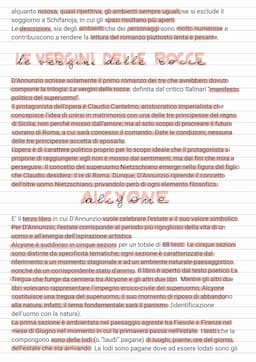 alquanto noiosa, quasi ripetitiva, gli ambienti sempre uguali, se si esclude il
soggiorno a Schifanoja, in cui gli spazi risultano più aperti.
Le descrizioni, sia degli ambienti che dei personaggi sono molto numerose e
contribuiscono a rendere la lettura del romanzo piuttosto lenta e pesante.
LE VERGINI DELLE ROCCE
le vergini delle rocce
D'Annunzio scrisse solamente il primo romanzo dei tre che avrebbero dovuto
comporre la trilogia: Le vergini delle rocce, definita dal critico Salinari "manifesto
politico del superuomo".
Il protagonista dell'opera è Claudio Cantelmo, aristocratico imperialista che
concepisce l'idea di unirsi in matrimonio con una delle tre principesse del regno
di Sicilia, non perché mosso dall'amore, ma al solo scopo di procreare il futuro
sovrano di Roma, a cui sarà concesso il comando. Date le condizioni, nessuna
delle tre principesse accetta di sposarlo.
L'opera è di carattere politico proprio per lo scopo ideale che il protagonista si
propone di raggiungere: egli non è mosso dai sentimenti, ma dai fini che mira a
perseguire. Il concetto del superuomo Nietzschiano emerge nella figura del figlio
che Claudio desidera: il re di Roma. Dunque, D'Annunzio riprende il concetto
dell'oltre uomo Nietzschiano, privandolo però di ogni elemento filosofico.
ALCYONE
alcyone
E' il terzo libro in cui D'Annunzio vuole celebrare l'estate e il suo valore simbolico.
Per D'Annunzio, l'estate corrisponde al periodo più rigoglioso della vita di un
uomo e all'energia dell'ispirazione artistica.
Alcyone è suddiviso in cinque sezioni per un totale di 88 testi. Le cinque sezioni
sono distinte da specificità tematiche; ogni sezione è caratterizzata dal
riferimento a un momento stagionale e ad un ambiente naturale paesaggistico,
nonché da un corrispondente stato d'animo. Il libro è aperto dal testo poetico La
Tregua che funge da cerniera tra Alcyone e gli altri due libri. Mentre gli altri due
libri volevano rappresentare l'impegno eroico-civile del superuomo, Alcyone
costituisce una tregua del superuomo, il suo momento di riposo di abbandono
alla natura; infatti, il tema fondamentale sarà il panismo (identificazione
dell'uomo con la natura).
La prima sezione è ambientata nel paesaggio agreste tra Fiesole e Firenze nel
mese di Giugno nel momento in cui la primavera passa nell'estate. I testi che la
compongono sono delle lodi (o "laudi" pagane) di luoghi, piante, ore del giorno,
dell'estate che sta arrivando. Le lodi sono pagane dove ad essere lodati sono gli